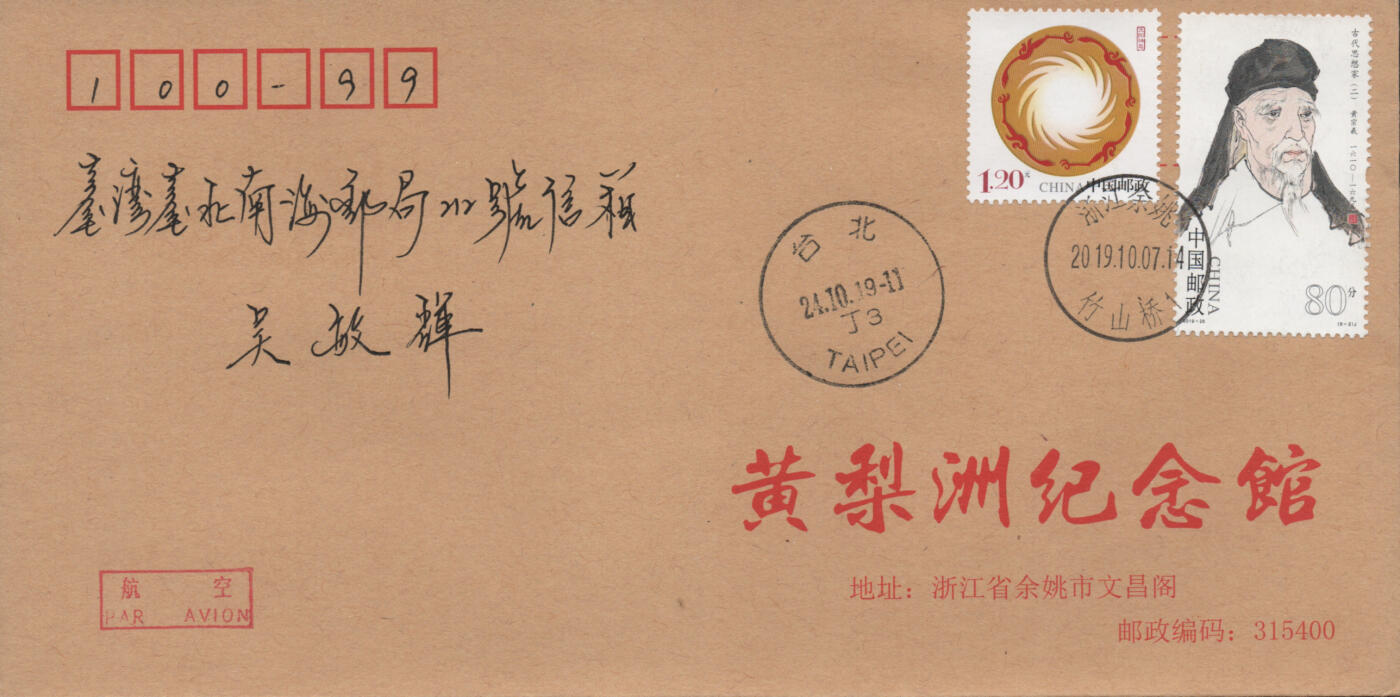 100-99
臺灣臺北南海郵局212號信箱
吳敏輝
1.20元
CHINA 中国邮政
古代思想家(二) 黄宗羲 一六一〇—一六九五
中国邮政
CHINA
80分
浙江余姚
2019.10.07.14
竹山桥1
台北
24.10.19-11
丁3
TAIPEI
黄梨洲纪念館
地址：浙江省余姚市文昌阁
邮政编码：315400
航空
PAR AVION